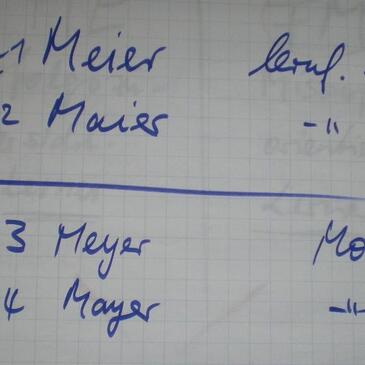 1 Meier beruf.
2 Maier -"
3 Meyer Mo
4 Mayer -"-